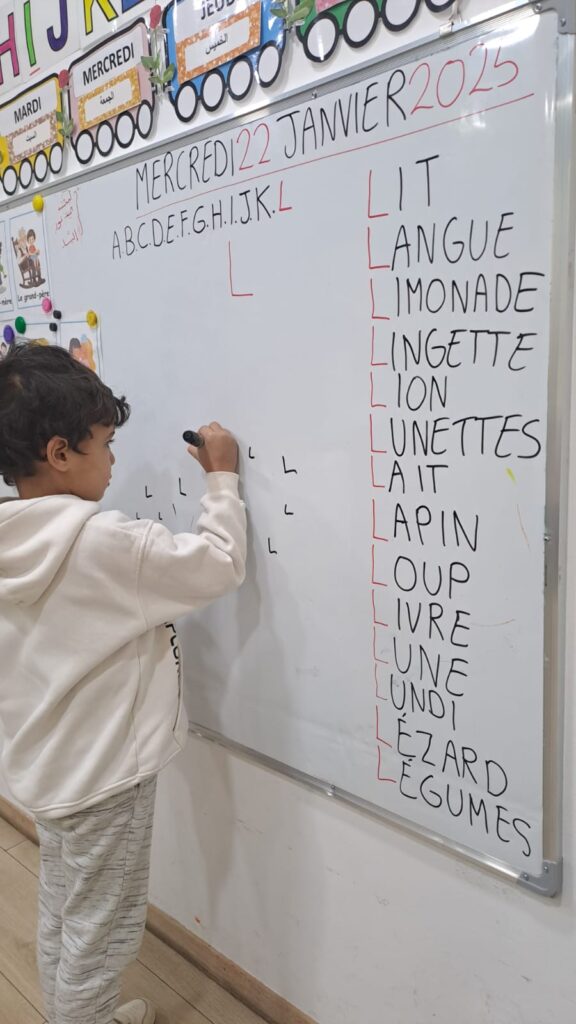 HIJK
JEUDI
الخميس
MERCREDI
الجمعة
MARDI
السبت
MERCREDI 22 JANVIER 2025
A.B.C.D.E.F.G.H.I.J.K.L
L
Le grand-père
LIT
LANGUE
LIMONADE
LINGETTE
LION
LUNETTES
LAIT
LAPIN
LOUP
LIVRE
LUNE
LUNDI
LÉZARD
LÉGUMES
L L
L L
L
L